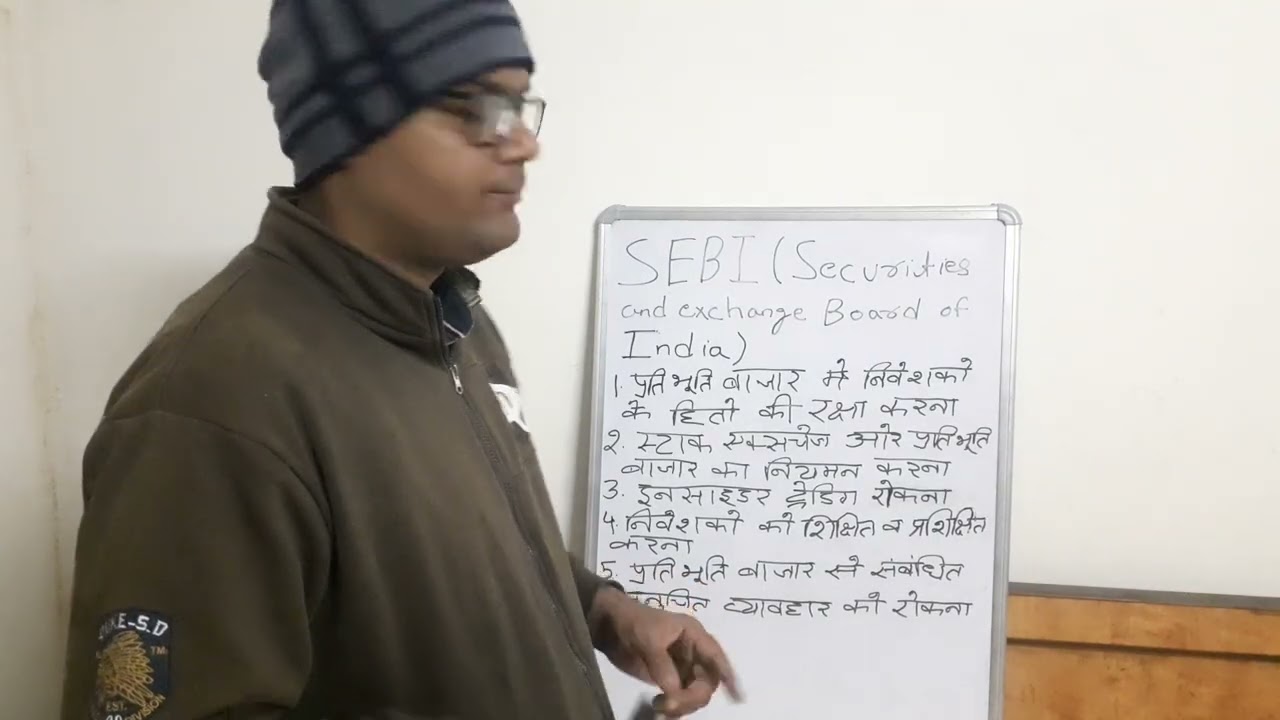 SEBI (Securities
and exchange Board of
India)
1. प्रतिभूति बाजार मे निवेशको
के हितो की रक्षा करना
2. स्टाक एक्सचेंज और प्रतिभूति
बाजार का नियमन करना
3. इनसाइडर ट्रेडिंग रोकना
4. निवेशको को शिक्षित व प्रशिक्षित
करना
5. प्रतिभूति बाजार से संबंधित
व्यावहार को रोकना
EST.
TM